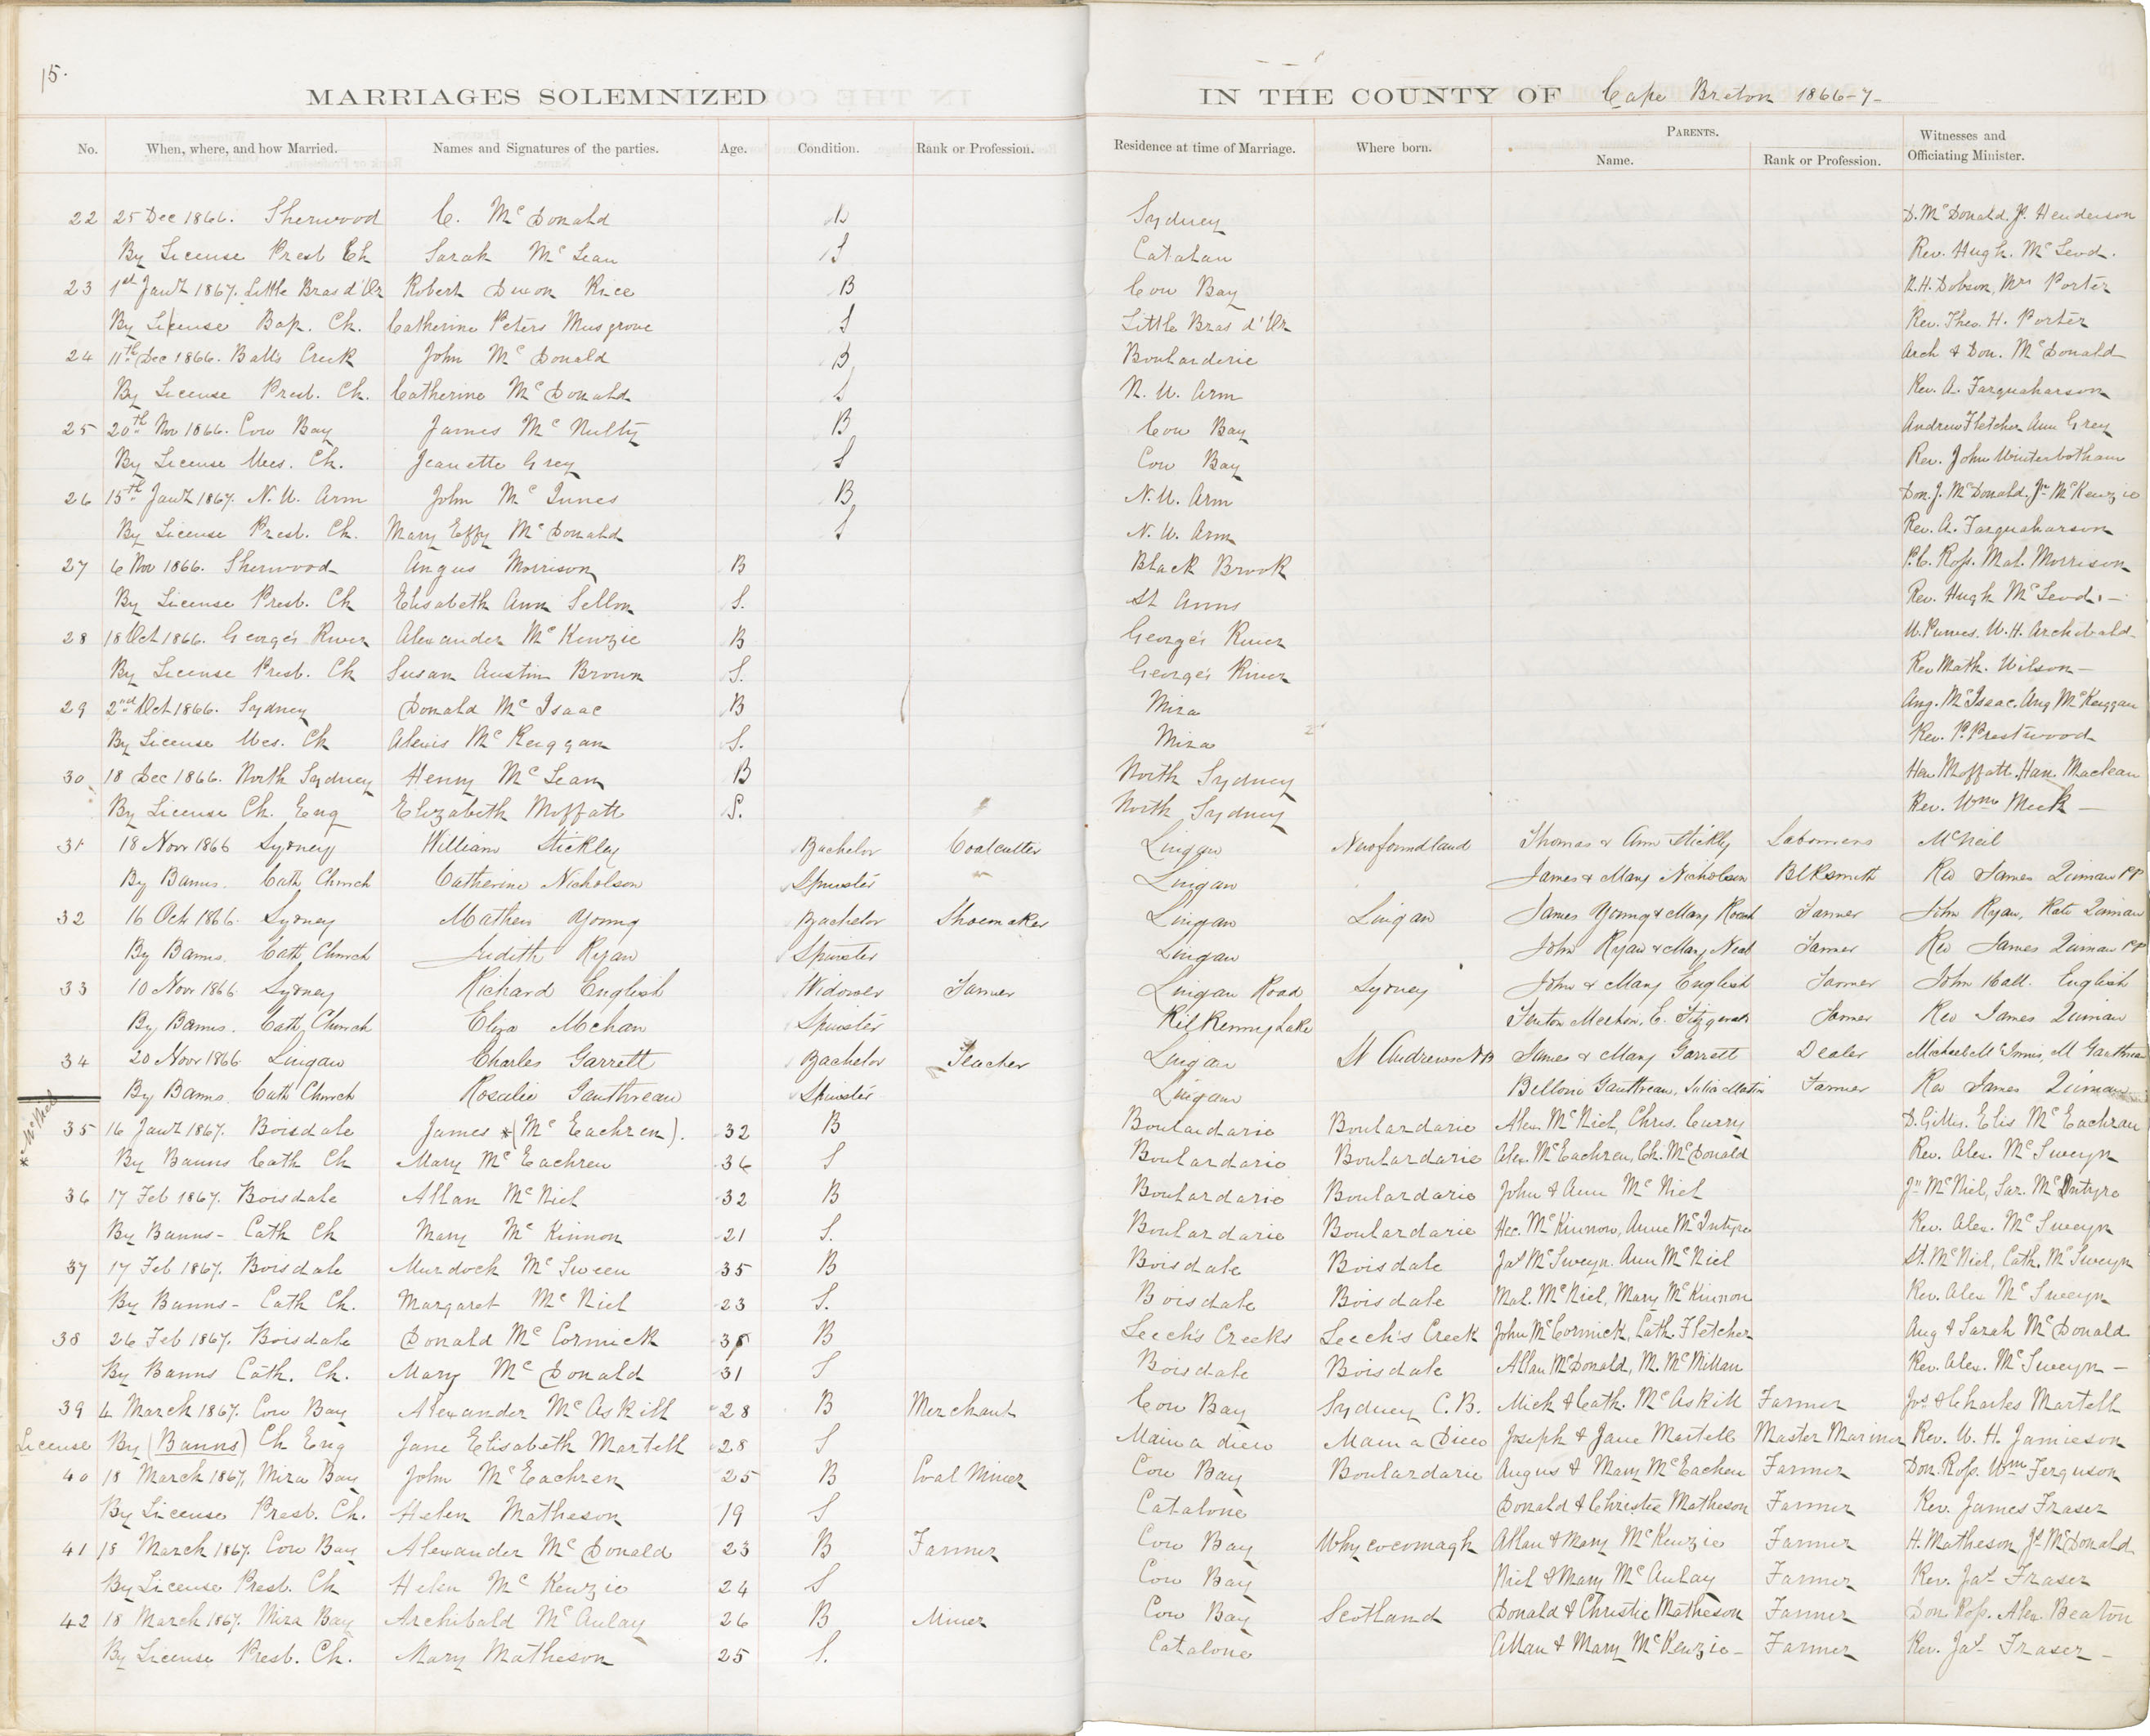 15.
MARRIAGES SOLEMNIZED IN THE COUNTY OF Cape Breton 1866-7-
No. When, where, and how Married. Names and Signatures of the parties. Age. Condition. Rank or Profession. Residence at time of Marriage. Where born. PARENTS. Name. Rank or Profession. Witnesses and Officiating Minister.
22 25 Dec 1866. Sherwood C. McDonald B Sydney D. McDonald, J. Henderson
By License Presb Ch Sarah McLean S Catalan Rev. Hugh McLeod.
23 1st Jany 1867. Little Bras d'Or Robert Dixon Rice B Cow Bay R.H. Dobson, Mrs Porter
By License Bap. Ch. Catherine Peters Musgrove S Little Bras d'Or Rev. Theo. H. Porter
24 11th Dec 1866. Balls Creek John McDonald B Boularderie Arch & Don. McDonald
By License Presb. Ch. Catherine McDonald S N. W. Arm Rev. A. Farquaharson
25 20th Nov 1866. Cow Bay James McNulty B Cow Bay Andrew Fletcher Ann Grey
By License Wes. Ch. Jeanette Grey S Cow Bay Rev. John Winterbotham
26 15th Jany 1867. N. W. Arm John McInnes B N. W. Arm Don. J. McDonald, Jn McKenzie
By License Presb. Ch. Mary Effy McDonald S N. W. Arm Rev. A. Farquaharson
27 6 Nov 1866. Sherwood Angus Morrison B Black Brook P.C. Ross. Mal. Morrison
By License Presb. Ch Elisabeth Ann Sellon S. St Anns Rev. Hugh McLeod. -
28 18 Oct 1866. George's River Alexander McKenzie B George's River W. Purves. W. H. Archibald-
By License Presb. Ch Susan Austin Brown S. George's River Rev Math. Wilson -
29 2nd Oct 1866. Sydney Donald McIsaac B Mira Ang. McIsaac, Ang McKeggan
By License Wes. Ch Alexis McKeggan S. Mira Rev. P. Prestwood
30 18 Dec 1866. North Sydney Henry McLean B North Sydney Hen Moffatt. Han. Maclean
By License Ch. Eng Elizabeth Moffatt S. North Sydney Rev. Wm Meek -
31 18 Novr 1866 Sydney William Stickley Bachelor Coalcutter Lingan Newfoundland Thomas & Ann Stickly Labourers McNeil
By Banns. Cath Church Catherine Nicholson Spinster Lingan James & Mary Nicholson Blksmith Rev James Quinan PP
32 16 Oct 1866. Sydney Mathew Young Bachelor Shoemaker Lingan Lingan James Young & Mary Roach Farmer John Ryan, Kate Quinan
By Banns. Cath Church Judith Ryan Spinster Lingan John Ryan & Mary Neal Farmer Rev James Quinan PP
33 10 Novr 1866 Sydney Richard English Widower Farmer Lingan Road Sydney John & Mary English Farmer John Hall. English
By Banns. Cath Church Eliza Mehan Spinster Kilkenny Lake Fenton Meehan, E. Fitzgerald Farmer Rev James Quinan
34 20 Novr 1866 Lingan Charles Garrett Bachelor Teacher Lingan St Andrews NB James & Mary Garrett Dealer Michael McInnis, M Gauthreau
By Banns. Cath Church Rosalie Gauthreau Spinster Lingan Bellonie Gauthreau, Julia Martin Farmer Rev James Quinan
* McNiel
35 16 Jany 1867. Boisdale James *(McEachren). 32 B Boulardarie Boulardarie Alex. McNiel, Chris. Curry D. Gillis. Elis McEachran
By Banns Cath Ch Mary McEachren 36 S Boulardarie Boulardarie Alex. McEachren, Ch. McDonald Rev. Alex. McSweyn
36 17 Feb 1867. Boisdale Allan McNiel 32 B Boulardarie Boulardarie John & Ann McNiel Jn McNiel, Sar. McIntyre
By Banns - Cath Ch Mary McKinnon 21 S. Boulardarie Boulardarie Hec. McKinnon, Anne McIntyre Rev. Alex. McSweyn
37 17 Feb 1867. Boisdale Murdock McSween 35 B Boisdale Boisdale Jas McSweyn. Ann McNiel St. McNiel, Cath. McSweyn
By Banns - Cath Ch. Margaret McNiel 23 S. Boisdale Boisdale Mal. McNiel, Mary McKinnon Rev. Alex McSweyn
38 26 Feb 1867. Boisdale Donald McCormick 35 B Leech's Creeks Leech's Creek John McCormick, Cath. Fletcher Aug & Sarah McDonald
By Banns Cath. Ch. Mary McDonald 31 S Boisdale Boisdale Allan McDonald, M. McMillan Rev. Alex. McSweyn -
39 4 March 1867. Cow Bay Alexander McAskill 28 B Merchant Cow Bay Sydney C. B. Mick & Cath. McAskill Farmer Jos & Charles Martell
License By (Banns) Ch Eng Jane Elisabeth Martell 28 S Main a dieu Main a Dieu Joseph & Jane Martell Master Mariner Rev. W. H. Jamieson
40 18 March 1867, Mira Bay John McEachren 25 B Coal Miner Cow Bay Boulardarie Angus & Mary McEachen Farmer Don. Ross. Wm Ferguson
By License Presb. Ch. Helen Matheson 19 S Catalone Donald & Christie Matheson Farmer Rev. James Fraser
41 18 March 1867. Cow Bay Alexander McDonald 23 B Farmer Cow Bay Whycocomagh Allan & Mary McKenzie Farmer H. Matheson, Js McDonald
By License Presb. Ch Helen McKenzie 24 S Cow Bay Niel & Mary McAulay Farmer Rev. Jas Fraser
42 18 March 1867. Mira Bay Archibald McAulay 26 B Miner Cow Bay Scotland Donald & Christie Matheson Farmer Don Ross. Alex Beaton
By License Presb. Ch. Mary Matheson 25 S. Catalone Allan & Mary McKenzie - Farmer Rev. Jas Fraser -